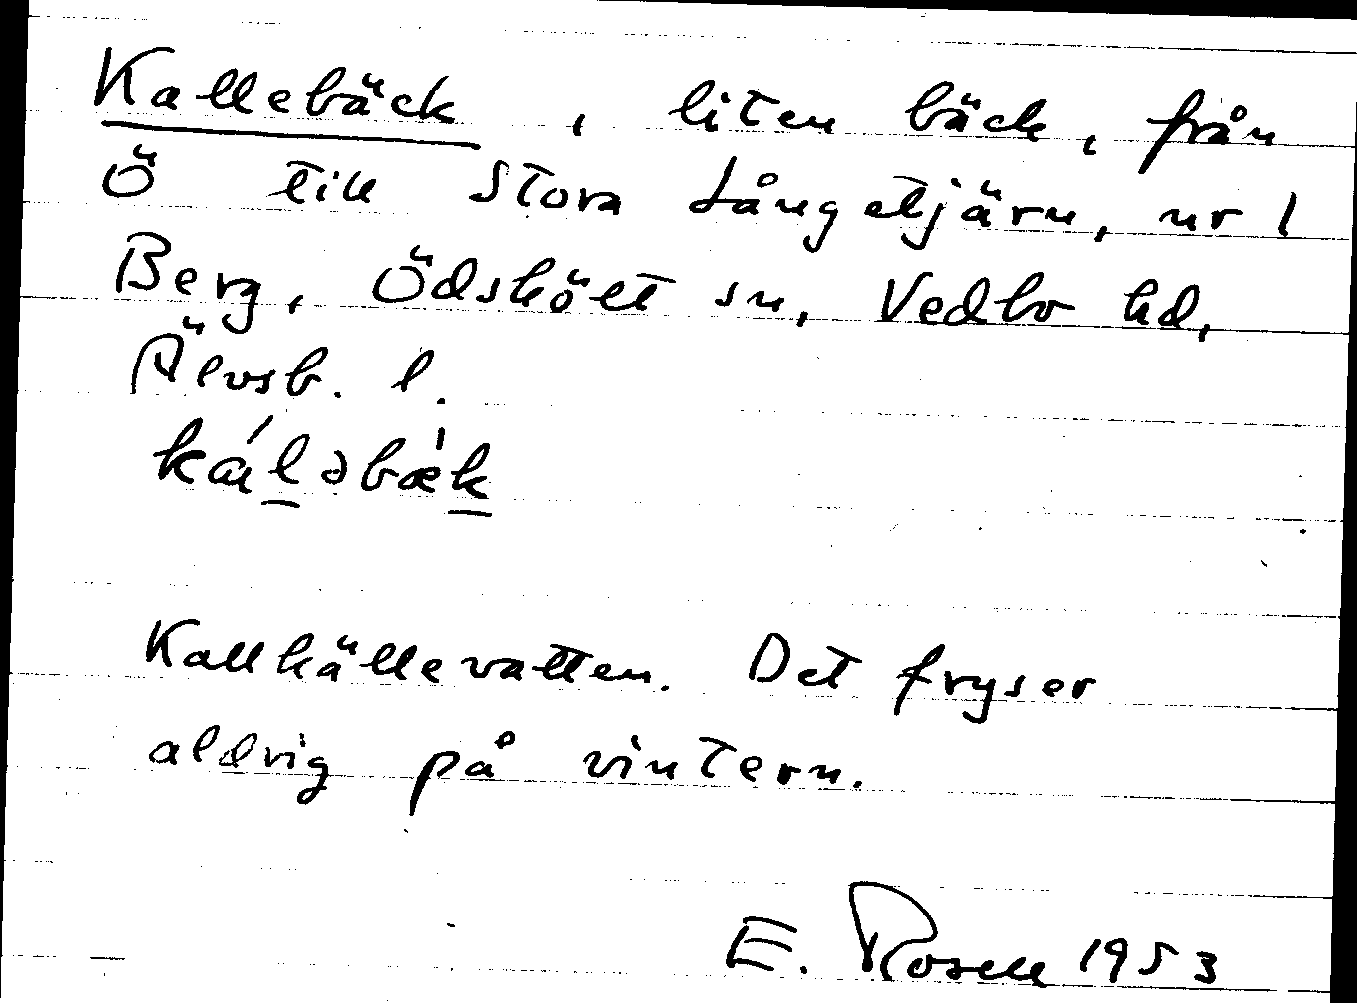 Kallebäck, liten bäck, från
Ö till Stora Långetjärn, nr 1
Berg, Ödskölt sn, Vedbo hd,
Älvsb. l.
kál̲əbæ̀k̲
Kallkällevatten. Det fryser
aldrig på vintern.
E. Rosell 1953